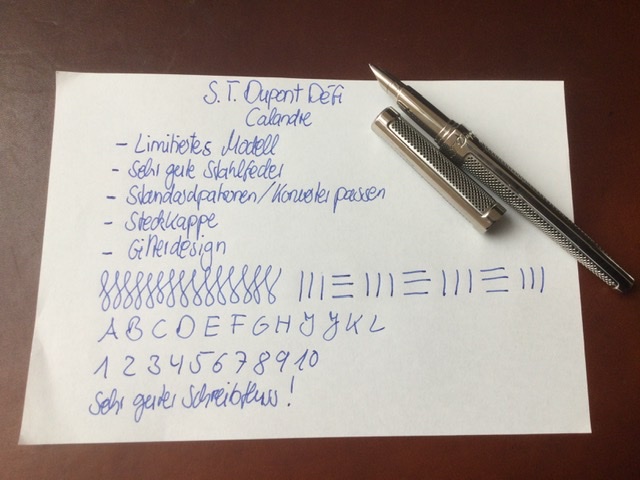 S.T. Dupont Défi
Calandre
- Limitiertes Modell
- Sehr gute Stahlfeder
- Standardpatronen/Konverter passen
- Steckkappe
- Gitterdesign
A B C D E F G H I J K L
1 2 3 4 5 6 7 8 9 10
Sehr guter Schreibfluss!